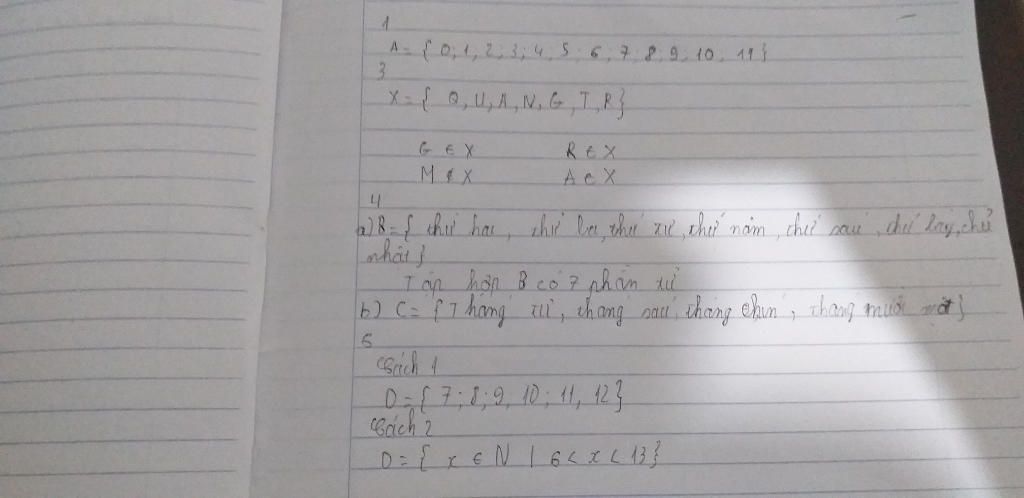 1
A = { 0; 1; 2; 3; 4; 5; 6; 7; 8; 9; 10; 11 }
3
X = { Q, U, A, N, G, T, R }
G ∈ X R ∈ X
M ∉ X A ∈ X
4
a) B = { thứ hai, thứ ba, thứ tư, thứ năm, thứ sáu, thứ bảy, chủ
nhật }
Tập hợp B có 7 phần tử
b) C = { Tháng tư, tháng sáu, tháng chín, tháng mười một }
5
Cách 1
D = { 7; 8; 9, 10; 11, 12 }
Cách 2
D = { x ∈ N | 6 < x < 13 }